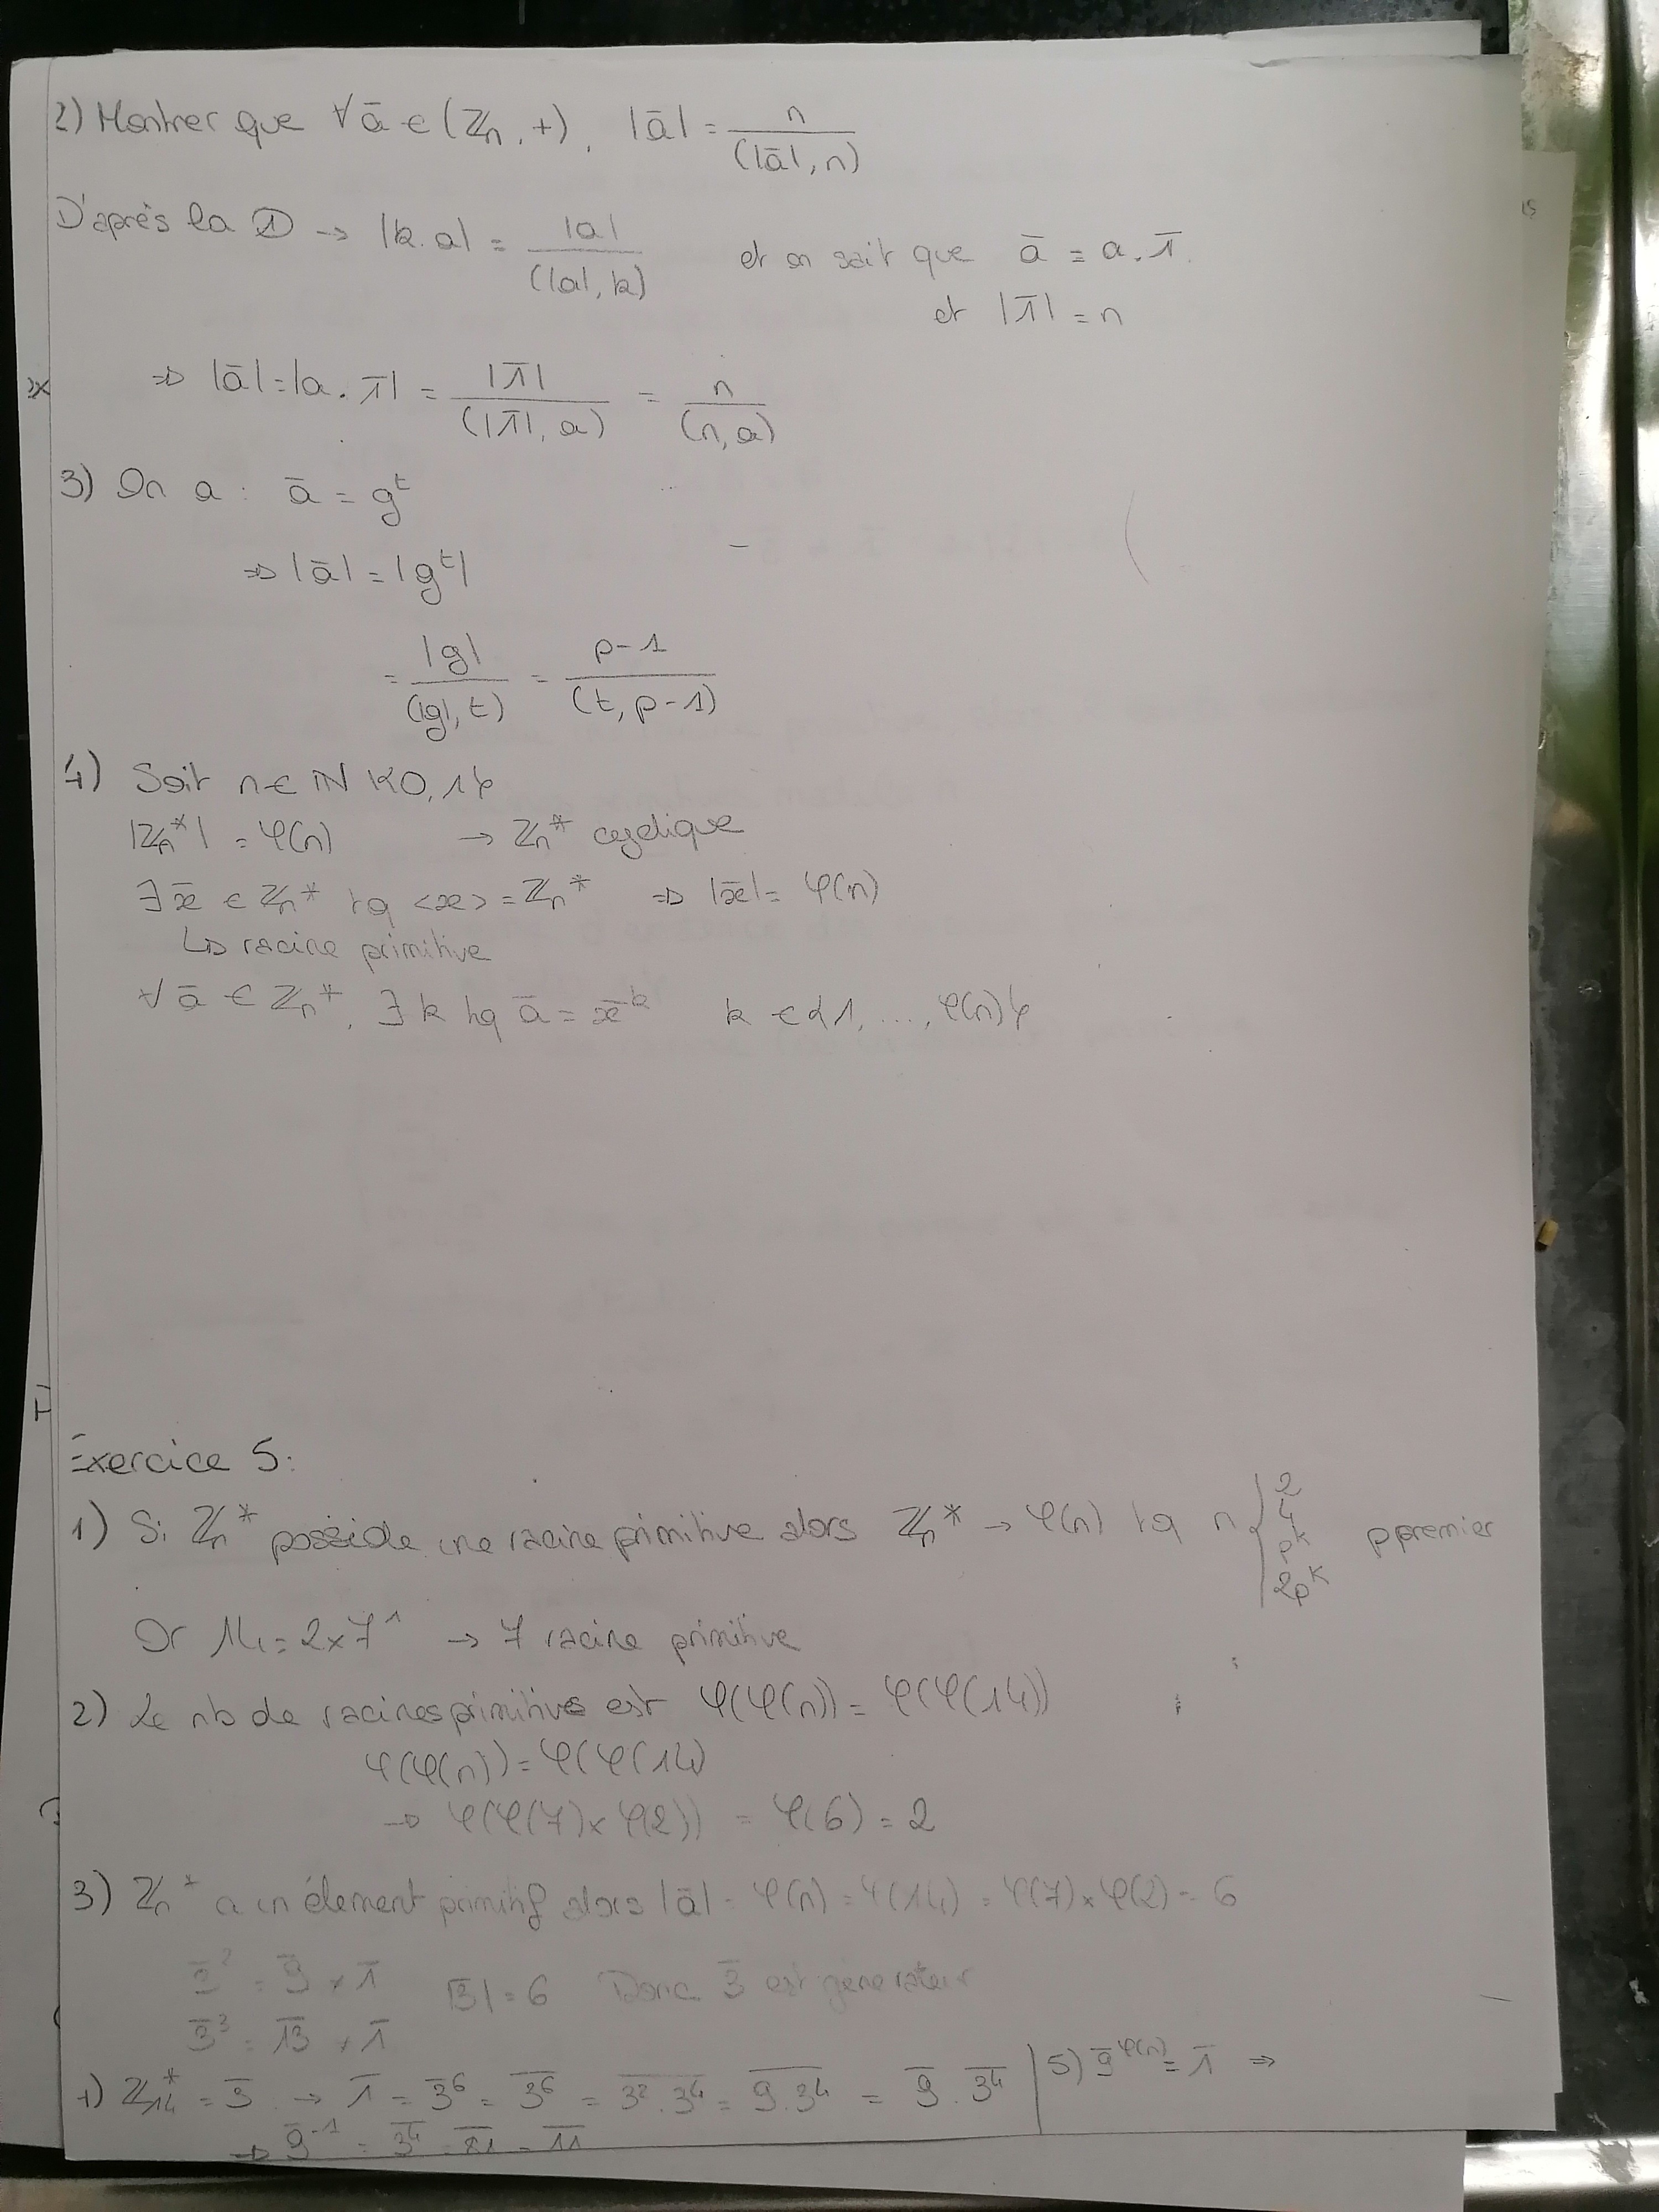 2) Montrer que ∀ ā ∈ (ℤn, +), |ā| = n / (|ā|, n)
D'après la ① → |k.a| = |a| / (|a|, k) et on sait que ā = a.1̄.
et |1̄| = n
⇒ |ā| = |a.1̄| = |1̄| / (|1̄|, a) = n / (n, a)
3) On a : ā = g^t
⇒ |ā| = |g^t|
= |g| / (|g|, t) = p-1 / (t, p-1)
4) Soit n ∈ ℕ \ {0, 1}
|ℤn*| = φ(n) → ℤn* cyclique
∃ x̄ ∈ ℤn* tq <x> = ℤn* ⇒ |x̄| = φ(n)
↳ racine primitive
∀ ā ∈ ℤn*, ∃ k tq ā = x̄^k k ∈ {1, ..., φ(n)}
Exercice 5:
1) Si ℤn* possède une racine primitive alors ℤn* → φ(n) tq n { 2
4
p^k p premier
2p^k
Or 14 = 2×7^1 → 7 racine primitive
2) Le nb de racines primitives est φ(φ(n)) = φ(φ(14))
φ(φ(n)) = φ(φ(14)
→ φ(φ(7) × φ(2)) = φ(6) = 2
3) ℤn* a un élement primitif alors |ā| = φ(n) = φ(14) = φ(7) × φ(2) = 6
3̄^2 = 9̄ ≠ 1̄ |3̄| = 6 Donc 3̄ est générateur
3̄^3 = 13̄ ≠ 1̄
4) ℤ14* = 3̄ → 1̄ = 3̄^6 = 3^6 = 3^2.3^4 = 9.3^4 = 9̄.3^4 | 5) 9̄^φ(n) = 1̄ ⇒
⇒ 9̄^-1 = 3^4 = 81 = 11